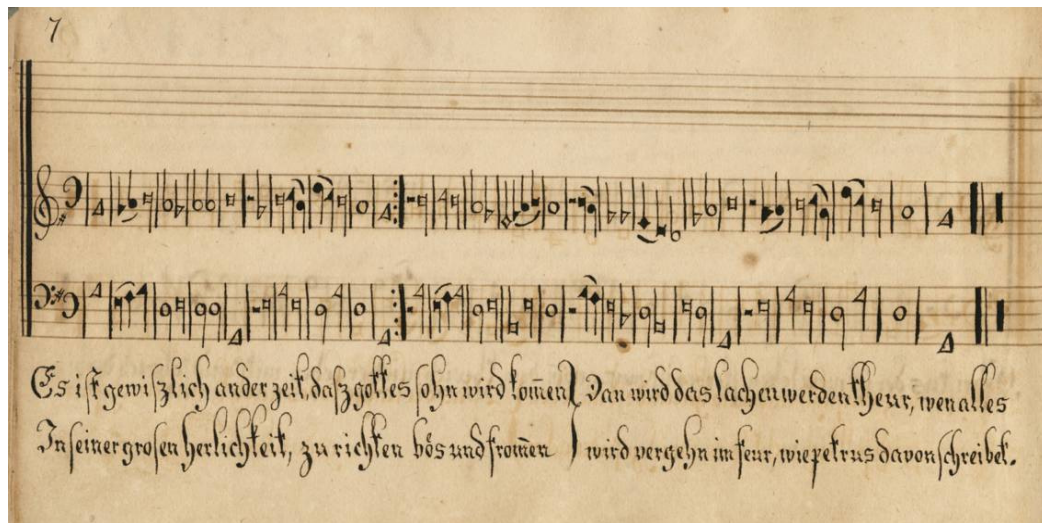 7
Es ist gewiszlich an der zeit, dasz gottes sohn wird kom̄en } Dan wird das lachen werden theur, wen alles
In seiner grosen herlichkeit, zu richten bös und from̄en } wird vergehn im feur, wie petrus davon schreibet.